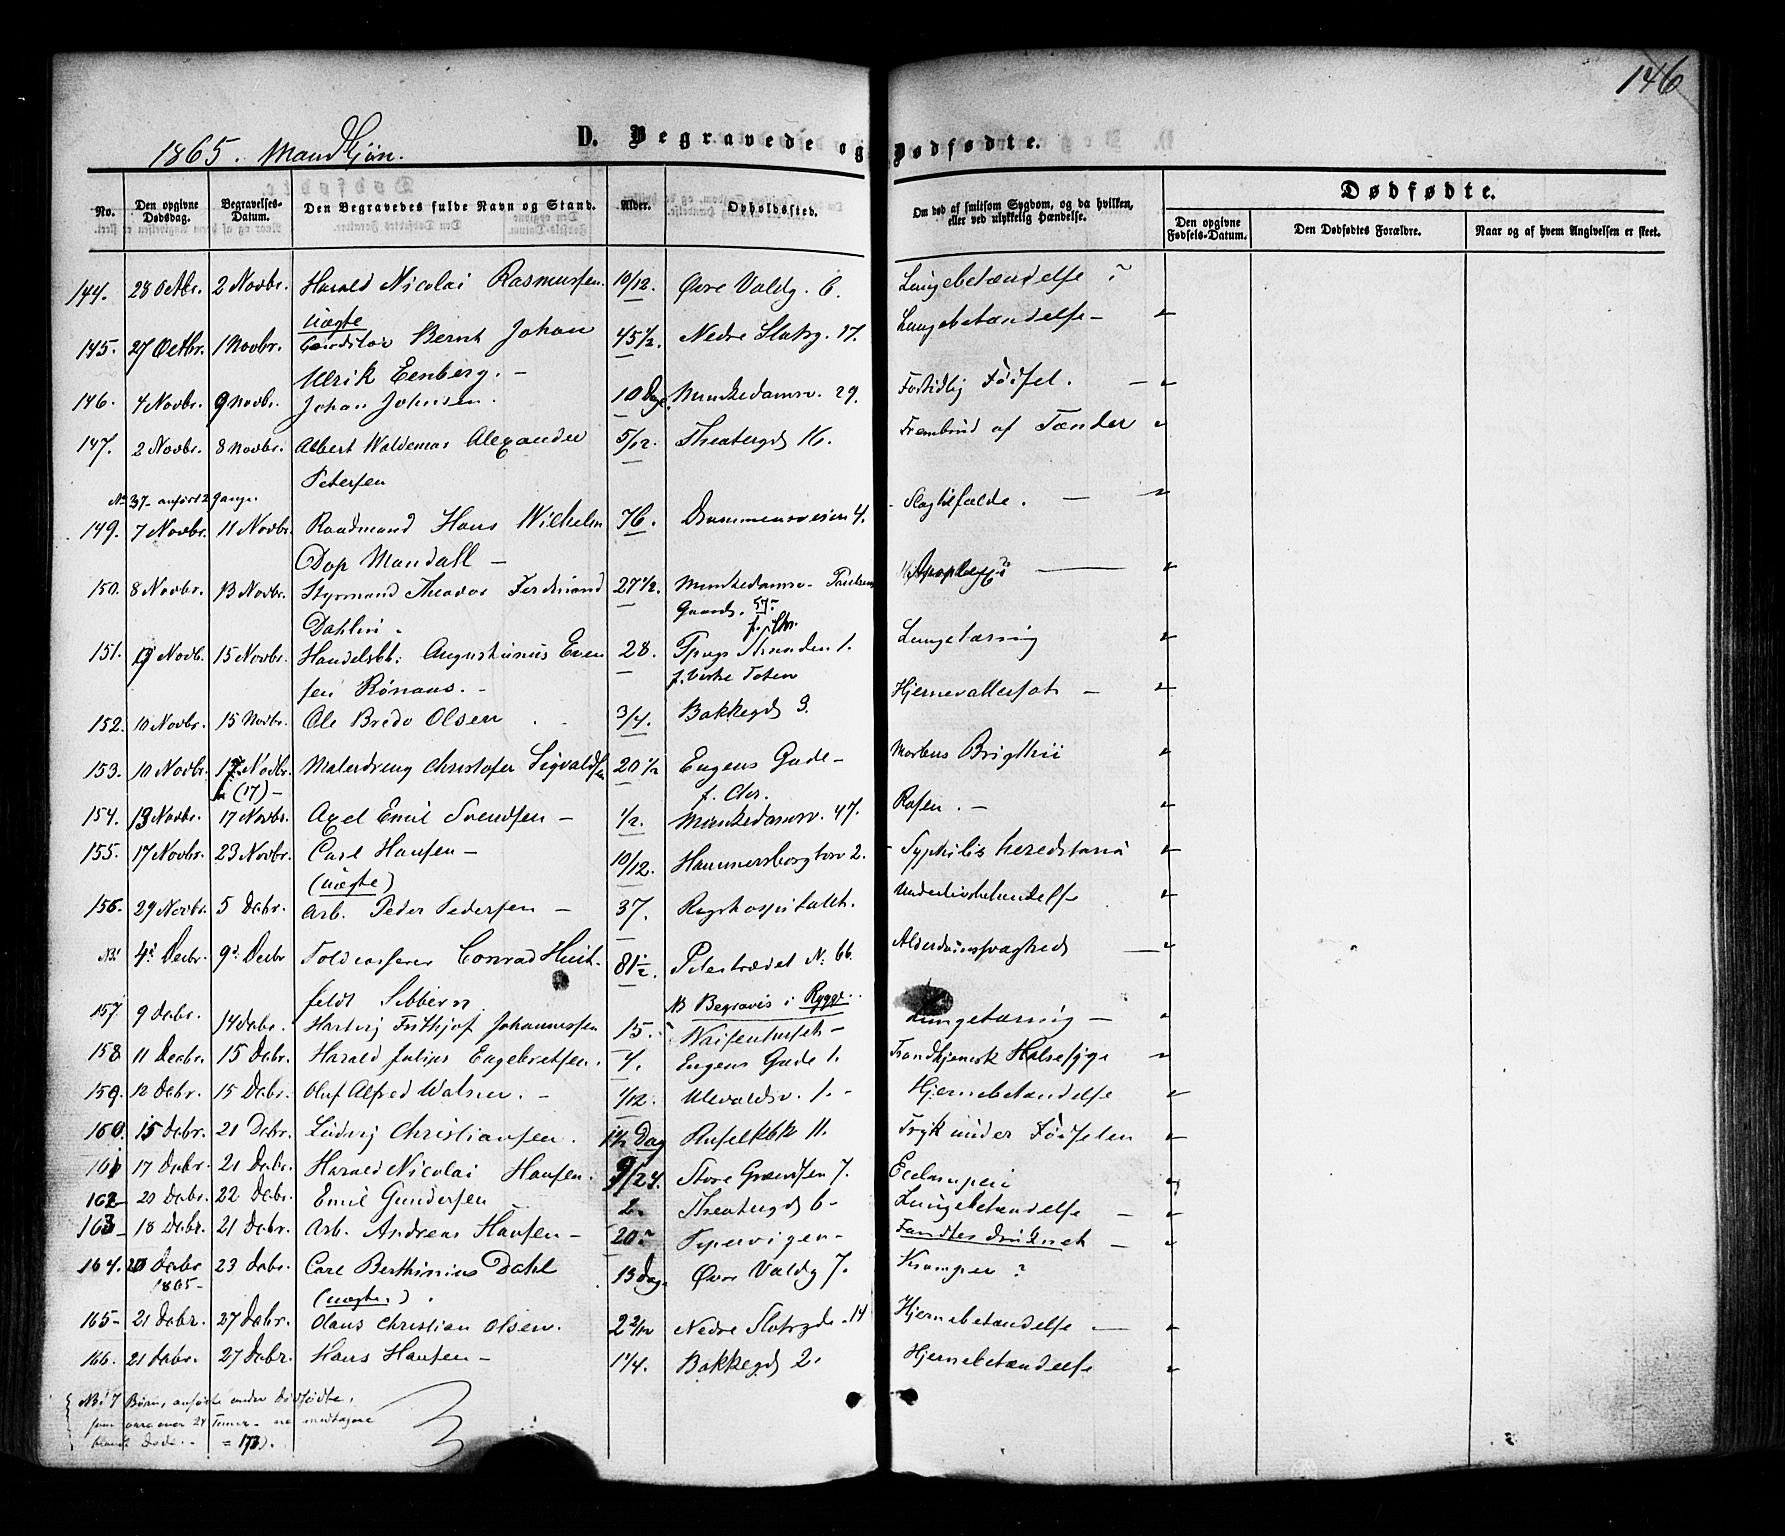 146
1865. Mandkjøn.
D. Begravede og Dødfødte.
No. Den opgivne Dødsdag. Begravelses-Datum. Den Begravedes fulde Navn og Stand. Alder. Opholdssted. Om død af smitsom Sygdom, og da hvilken, eller ved ulykkelig Hændelse. Dødfødte.
Den opgivne Fødsels-Datum. Den Dødfødtes Forældre. Naar og af hvem Angivelsen er skeet.
144. 28 Octbr. 2 Novbr. Harald Nicolai Rasmussen 10/12. Øvre Voldg. 6. Lungebetændelse ?
uægte
145. 27 Octbr. 1 Novbr. Conditor Bernt Johan 45 1/2. Nedre Slotsg. 17. Lungebetændelse -
Ulrik Eenberg. -
146. 4 Novbr. 9 Novbr. Johan Johnsen. 10 Dage. Munkedamsv. 29. Fortidlig Fødsel. -
147. 2 Novbr. 8 Novbr. Albert Waldemar Alexander 5/12. Theatergd 16. Frembrud af Tænder
Petersen
No 37 - anført 2 Gange.
149. 7 Novbr. 11 Novbr. Raadmand Hans Wilhelm 76. Drammensveien 4. Slagtilfælde. -
Dop Mandall -
150. 8 Novbr. 13 Novbr. Styrmand Theodor Ferdinand 27 1/2. Munkedamsv. Apoplexi
Gaard. 57.
Dahlin. f. i Chr.
151. 9 Novb. 15 Novbr. Handelsbt: Augustinus Even 28. Stranden 1. Lungetæring
sen Rønaas. - f. Vestre Toten
152. 10 Novbr. 15 Novbr. Ole Bredo Olsen 3/4. Bakkegd 9. Hjernevattersot -
153. 10 Novbr. 17 Novbr. Malerdreng Christofer Sigvaldsen 20 1/2 Eugens Gade - Morbus Brigthii
(17) - f. Chr.
154. 13 Novbr. 17 Novbr. Axel Emil Svendsen - 1/2. Munkedamsv. 47. Rosen. -
155. 17 Novbr. 23 Novbr. Carl Hansen - 10/12. Hammersborgtorv 2. Syphilis hereditaria
(uægte)
156. 29 Novbr. 5 Debr. Arb. Peder Pedersen - 37. Rigshospitalet. Underlivsbetændelse
NB. 4d Decbr. 9d Decbr Toldcasserer Conrad Huit- 81 1/2. Pilestrædet N: 66. Alderdomssvaghed
feldt Sibbern NB Begraves i Rygge.
157 9 Debr. 14 Debr. Hartvig Frithjof Johannessen 15. Waisenhuset - Lungetæring -
158 11 Decbr. 15 Debr. Harald Julius Engebretsen. 4. Eugens Gade 1. Strandkjærsk Halssyge
159. 12 Debr. 15 Debr. Oluf Alfred Walsner. - 1/12. Ulevoldsv. 1. - Hjernebetændelse
160. 15 Debr. 21 Debr. Ludvig Christiansen. 1 1/2 Dag Rusеløkbk 11. Tryk under Fødselen
161 17 Debr. 21 Debr. Harald Nicolai Hansen. 9/24. Store Grændsen 7. Eclampsi
162 20 Debr. 22 Debr. Emil Gundersen 2. Theatergd 6 - Lungebetændelse -
163 - 18 Debr. 21 Debr. Arb. Andreas Hansen - 20. Pipervigen - Fandtes druknet -
164. 20 Debr 23 Debr. Carl Berthinius Dahl 13 Dage Øvre Voldg 7. Kramper ?
1865 - (uægte.).
165 - 21 Debr. 27 Debr. Olaus Christian Olsen. 2 2/12 Nedre Slotsgde. 14 Hjernebetændelse -
166. 21 Debr. 27 Debr. Hans Hansen - 1 1/4. Bakkegd 2. Hjernebetændelse
NB: 7 Børn, anførte under Dødfødte,
som vare over 24 Timer - er medtagne
blandt Døde. - = 173).